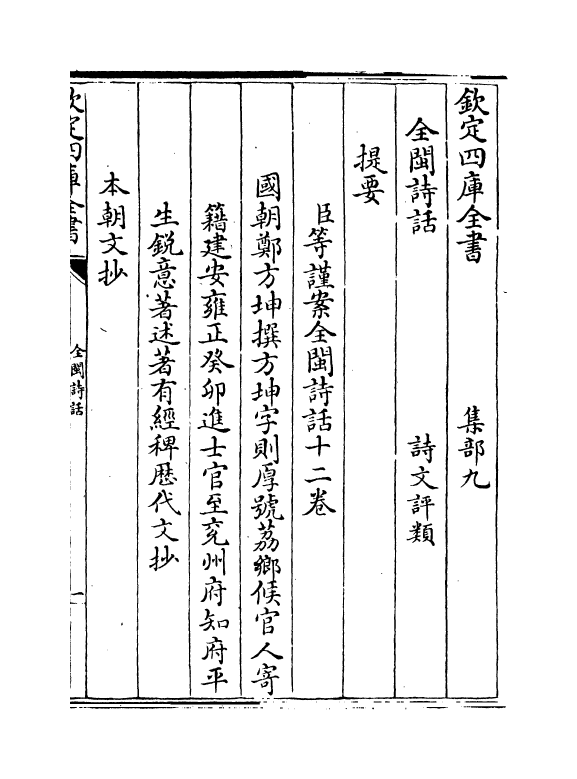 欽定四庫全書　集部九
全閩詩話　詩文評類
提要
臣等謹案全閩詩話十二卷
國朝鄭方坤撰方坤字則厚號荔鄉候官人寄
籍建安雍正癸卯進士官至兖州府知府平
生鋭意著述著有經稗歴代文抄
本朝文抄
欽定四庫全書
全閩詩話
一